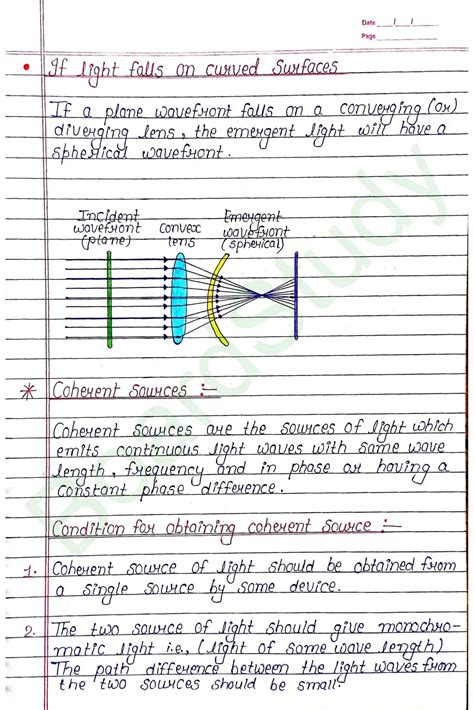 Date / /
Page
• If light falls on curved Surfaces
If a plane wavefront falls on a converging (or)
diverging lens, the emergent light will have a
spherical wavefront.
Incident wavefront (plane)
Convex lens
Emergent wavefront (spherical)
* Coherent Sources :-
Coherent sources are the sources of light which
emits continuous light waves with same wave
length, frequency and in phase or having a
constant phase difference.
Condition for obtaining coherent source :-
1. Coherent source of light should be obtained from
a single source by some device.
2. The two source of light should give monochro-
matic light i.e., (light of some wave length)
The path difference between the light waves from
the two sources should be small.
BoardStudy